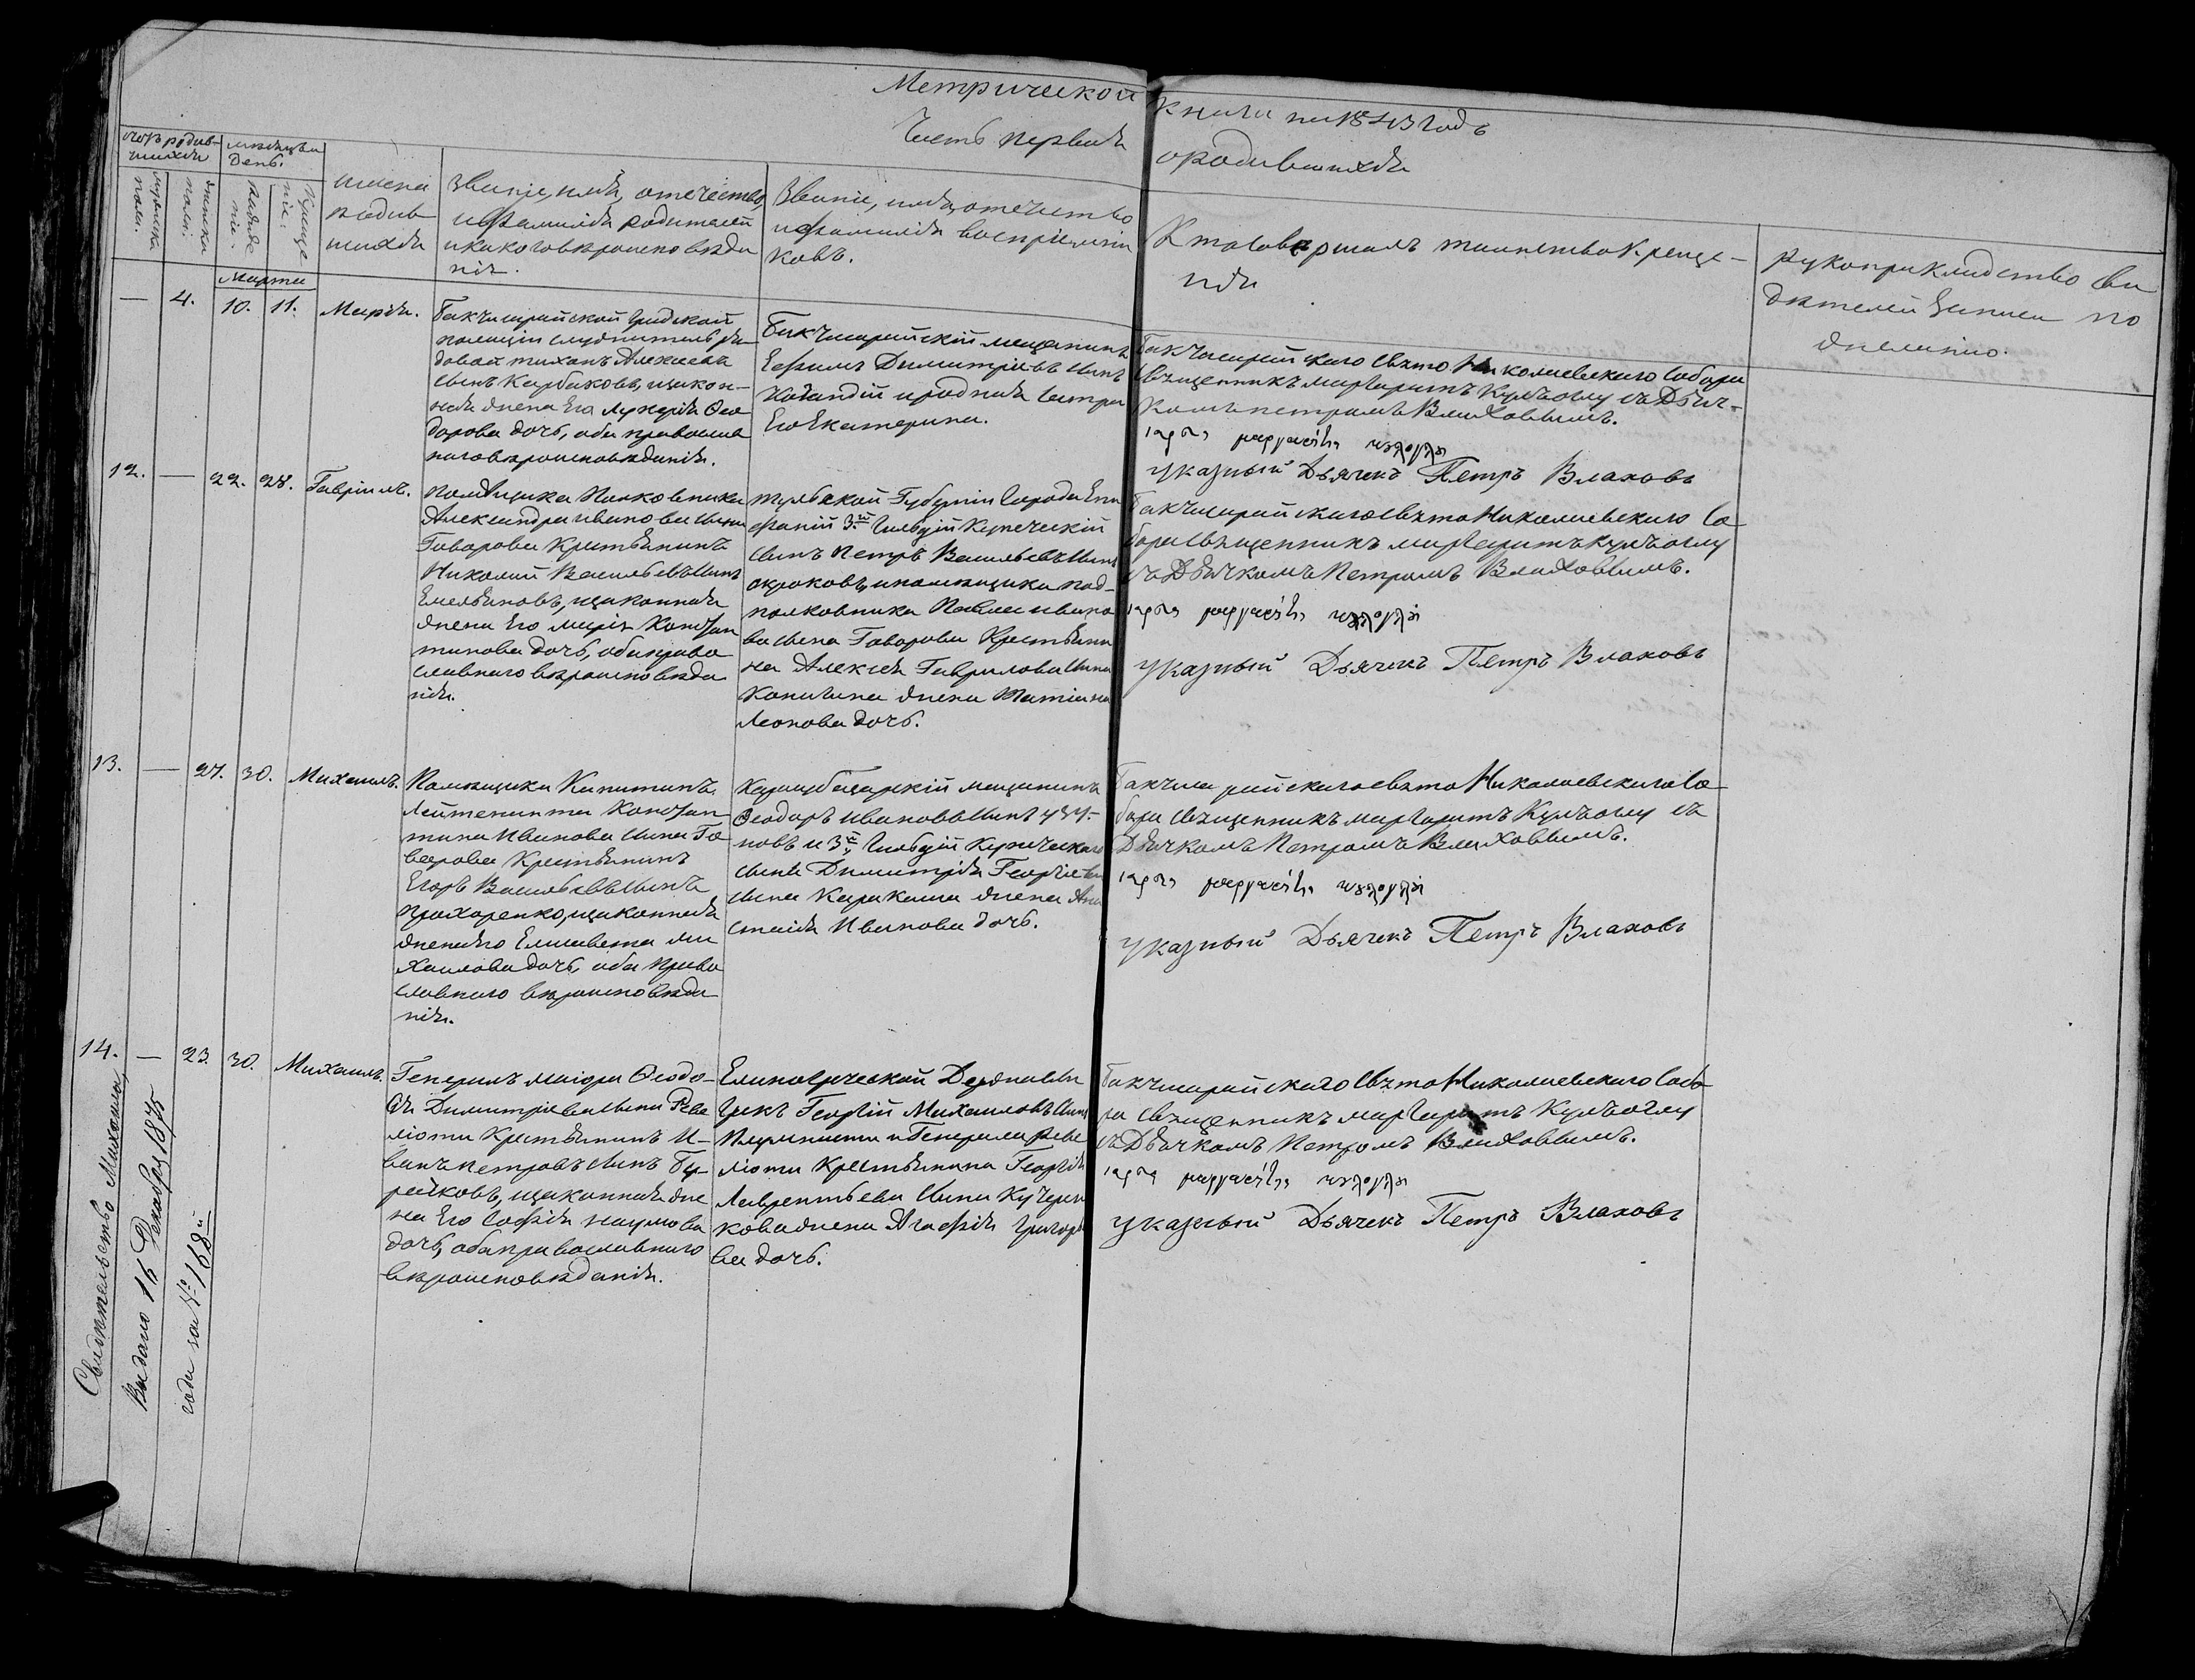 Метрической книги на 1843 годъ
Часть первая о родившихся
счетъ родив-
шихся
мужеска
пола.
женска
пола.
месяцъ и
день.
рожде
нія.
креще
нія.
имена
родив
шихся
Званіе, имя, отечество,
и фамилія родителей
и какого вероисповеда
нія.
Званіе, имя, отечество
и фамилія воспріемни
ковъ.
Кто совершалъ таинство креще-
нія
Рукоприкладство сви
детелей записи по
желанію.
Марта
— 4. 10. 11. Марія.
Бакчисарайской градской
полиціи служитель ря-
довой Тихонъ Алексеевъ
сынъ Карбаковъ, и закон-
ная жена его Лукерія Фео
дорова дочь, оба православ
наго вероисповеданія.
Бакчисарайскій мещанинъ
Ефимъ Димитріевъ сынъ
и родная сестра
его Екатерина.
Бакчисарайскаго Свято Николаевскаго Собора
Священникъ Маргаритъ Кулъоглу съ Дьяч-
комъ Петромъ Влаховымъ.
Указный Дьячекъ Петръ Влаховъ
12. — 22. 28. Гавріилъ.
Помещика Полковника
Александра Иванова сына
Говорова крестьянинъ
Николай Васильевъ сынъ
Емельяновъ, и законная
жена его Марія Констан
тинова дочь, оба право
славнаго вероисповеда
нія.
Тульской Губерніи города Епи
фаній 3й Гильдій Купеческій
сынъ Петръ Васильевъ сынъ
Окроковъ, и помещика под-
полковника Павла Ивано
ва сына Говорова Крестьяни
на Алексея Гаврилова сына
Копичина жена Татіана
Леонова дочь.
Бакчисарайскаго Свято Николаевскаго Со-
бора Священникъ Маргаритъ Кулъоглу
съ Дьячкомъ Петромъ Влаховымъ.
Указный Дьячекъ Петръ Влаховъ
13. — 27. 30. Михаилъ.
Помещика Капитанъ
Лейтенанта Констан
тина Иванова сына Го-
ворова Крестьянинъ
Егоръ Васильевъ сынъ
Прохоренко, и законная
жена его Елисавета Ми
хаилова дочь, оба Право
славнаго вероисповеда
нія.
Карасубазарскій мещанинъ
Феодоръ Ивановъ сынъ
новъ и 3й Гильдій Купеческаго
сына Димитрія Георгіева
сына Каракаша жена Ана
стасія Иванова дочь.
Бакчисарайскаго Свято Николаевскаго Со-
бора Священникъ Маргаритъ Кулъоглу съ
Дьячкомъ Петромъ Влаховымъ.
Указный Дьячекъ Петръ Влаховъ
14. — 23. 30. Михаилъ.
Генералъ маіора Феодо-
сія Димитріева сына Реве
ліоти Крестьянинъ И-
ванъ Петровъ сынъ Бу-
рейковъ, и законная же
на его Софія Наумова
дочь, оба православнаго
вероисповеданія.
Елиногреческой Державы
Грекъ Георгій Михаиловъ сынъ
и Генерала Реве
ліоти Крестьянина Георгія
Лаврентьева сына Кучерен
кова жена Агафія Григорь
ева дочь.
Бакчисарайскаго Свято Николаевскаго Собо-
ра Священникъ Маргаритъ Кулъоглу
съ Дьячкомъ Петромъ Влаховымъ.
Указный Дьячекъ Петръ Влаховъ
Свидетельство Михаилу
Выдано 16 Декабря 1875
года за № 168й